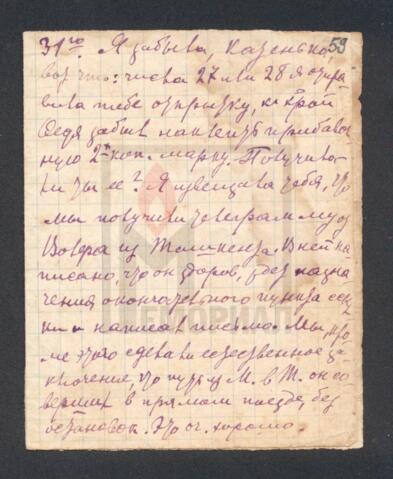 59
31го. Я забыла, Казенька,
вот что: числа 27 или 28 я отпра
вила тебе открытку, к к-рой
Федя забыл наклеить прибавоч
ную 2х коп. марку. Получил
ли ты ее? Я извещала тебя, что
мы получили телеграмму от
Вовы из Ташкента. В ней на
писано, что он здоров, без назна
чения окончательного пункта ссыл
ки и написал письмо. Мы кро
ме этого сделали естественное за
ключение, что путь из М. в Т. он со
вершил в прямом поезде, без
остановок. Это оч. хорошо.
МЕМОРИАЛ